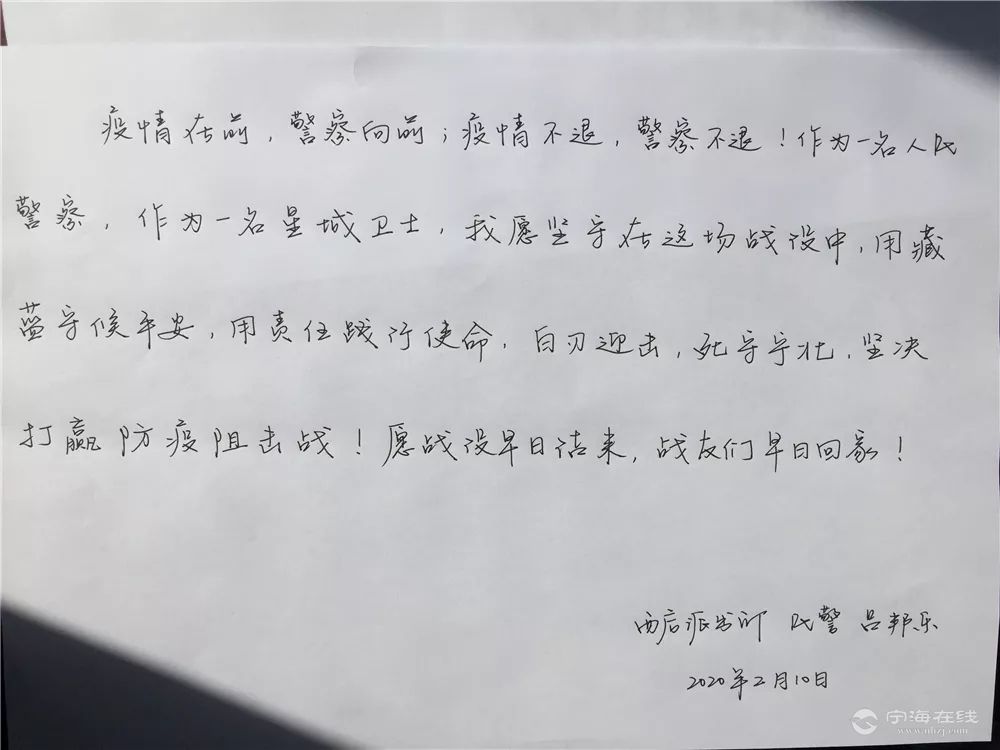 疫情在前，警察向前；疫情不退，警察不退！作为一名人民
警察，作为一名星城卫士，我愿坚守在这场战役中，用藏
蓝守候平安，用责任践行使命，白刃迎击，死守宁北，坚决
打赢防疫阻击战！愿战役早日结束，战友们早日回家！
西店派出所 民警 吕邦乐
2020年2月10日
宁海在线
www.nhzj.com